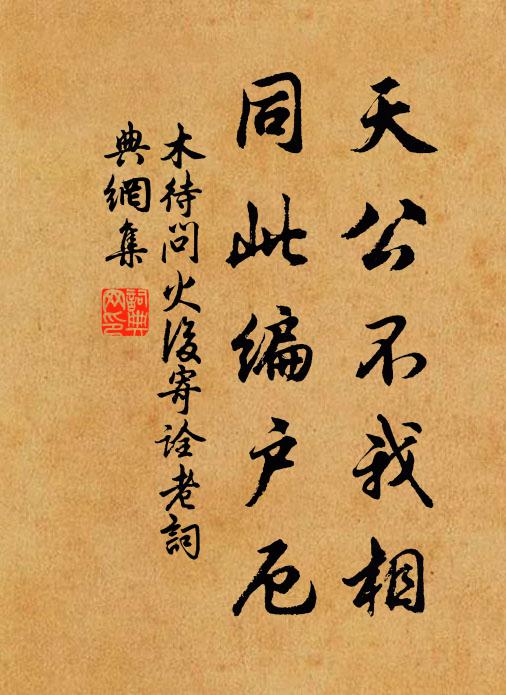 天公不我相
同此编户厄
木待問火後寄詮老詞
典網集
詞典网印